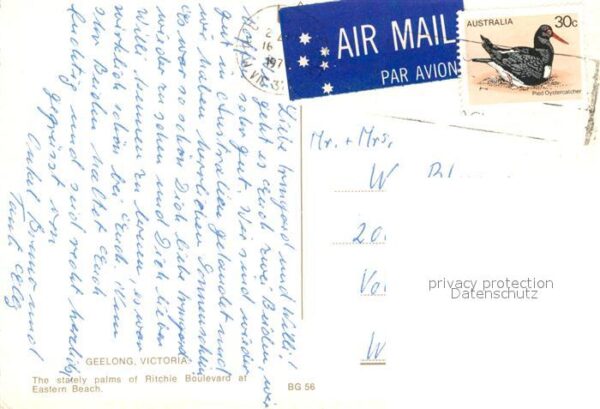 AUSTRALIA 30c
Pied Oystercatcher
AIR MAIL
PAR AVION
2
16
197
VIC-3
Mr. + Mrs.
W
20
W
privacy protection
Datenschutz
Liebe Irmgard und Willi!
geht es Euch zwei Beiden, wir
sehr gut. Wir sind wieder
gut in Australien gelandet und
wir haben herrlichen Sonnenschein
Es war schön Dich liebe Irmgard
wieder zu sehen und Dich lieber
Willi kennen zu lernen, es war
wirklich schön bei Euch.
Ihr Beiden haltet Euch
und seid recht herzlich
gegrüsst von
Onkel Bruno und
Tante
GEELONG, VICTORIA
The stately palms of Ritchie Boulevard at
Eastern Beach.
BG 56